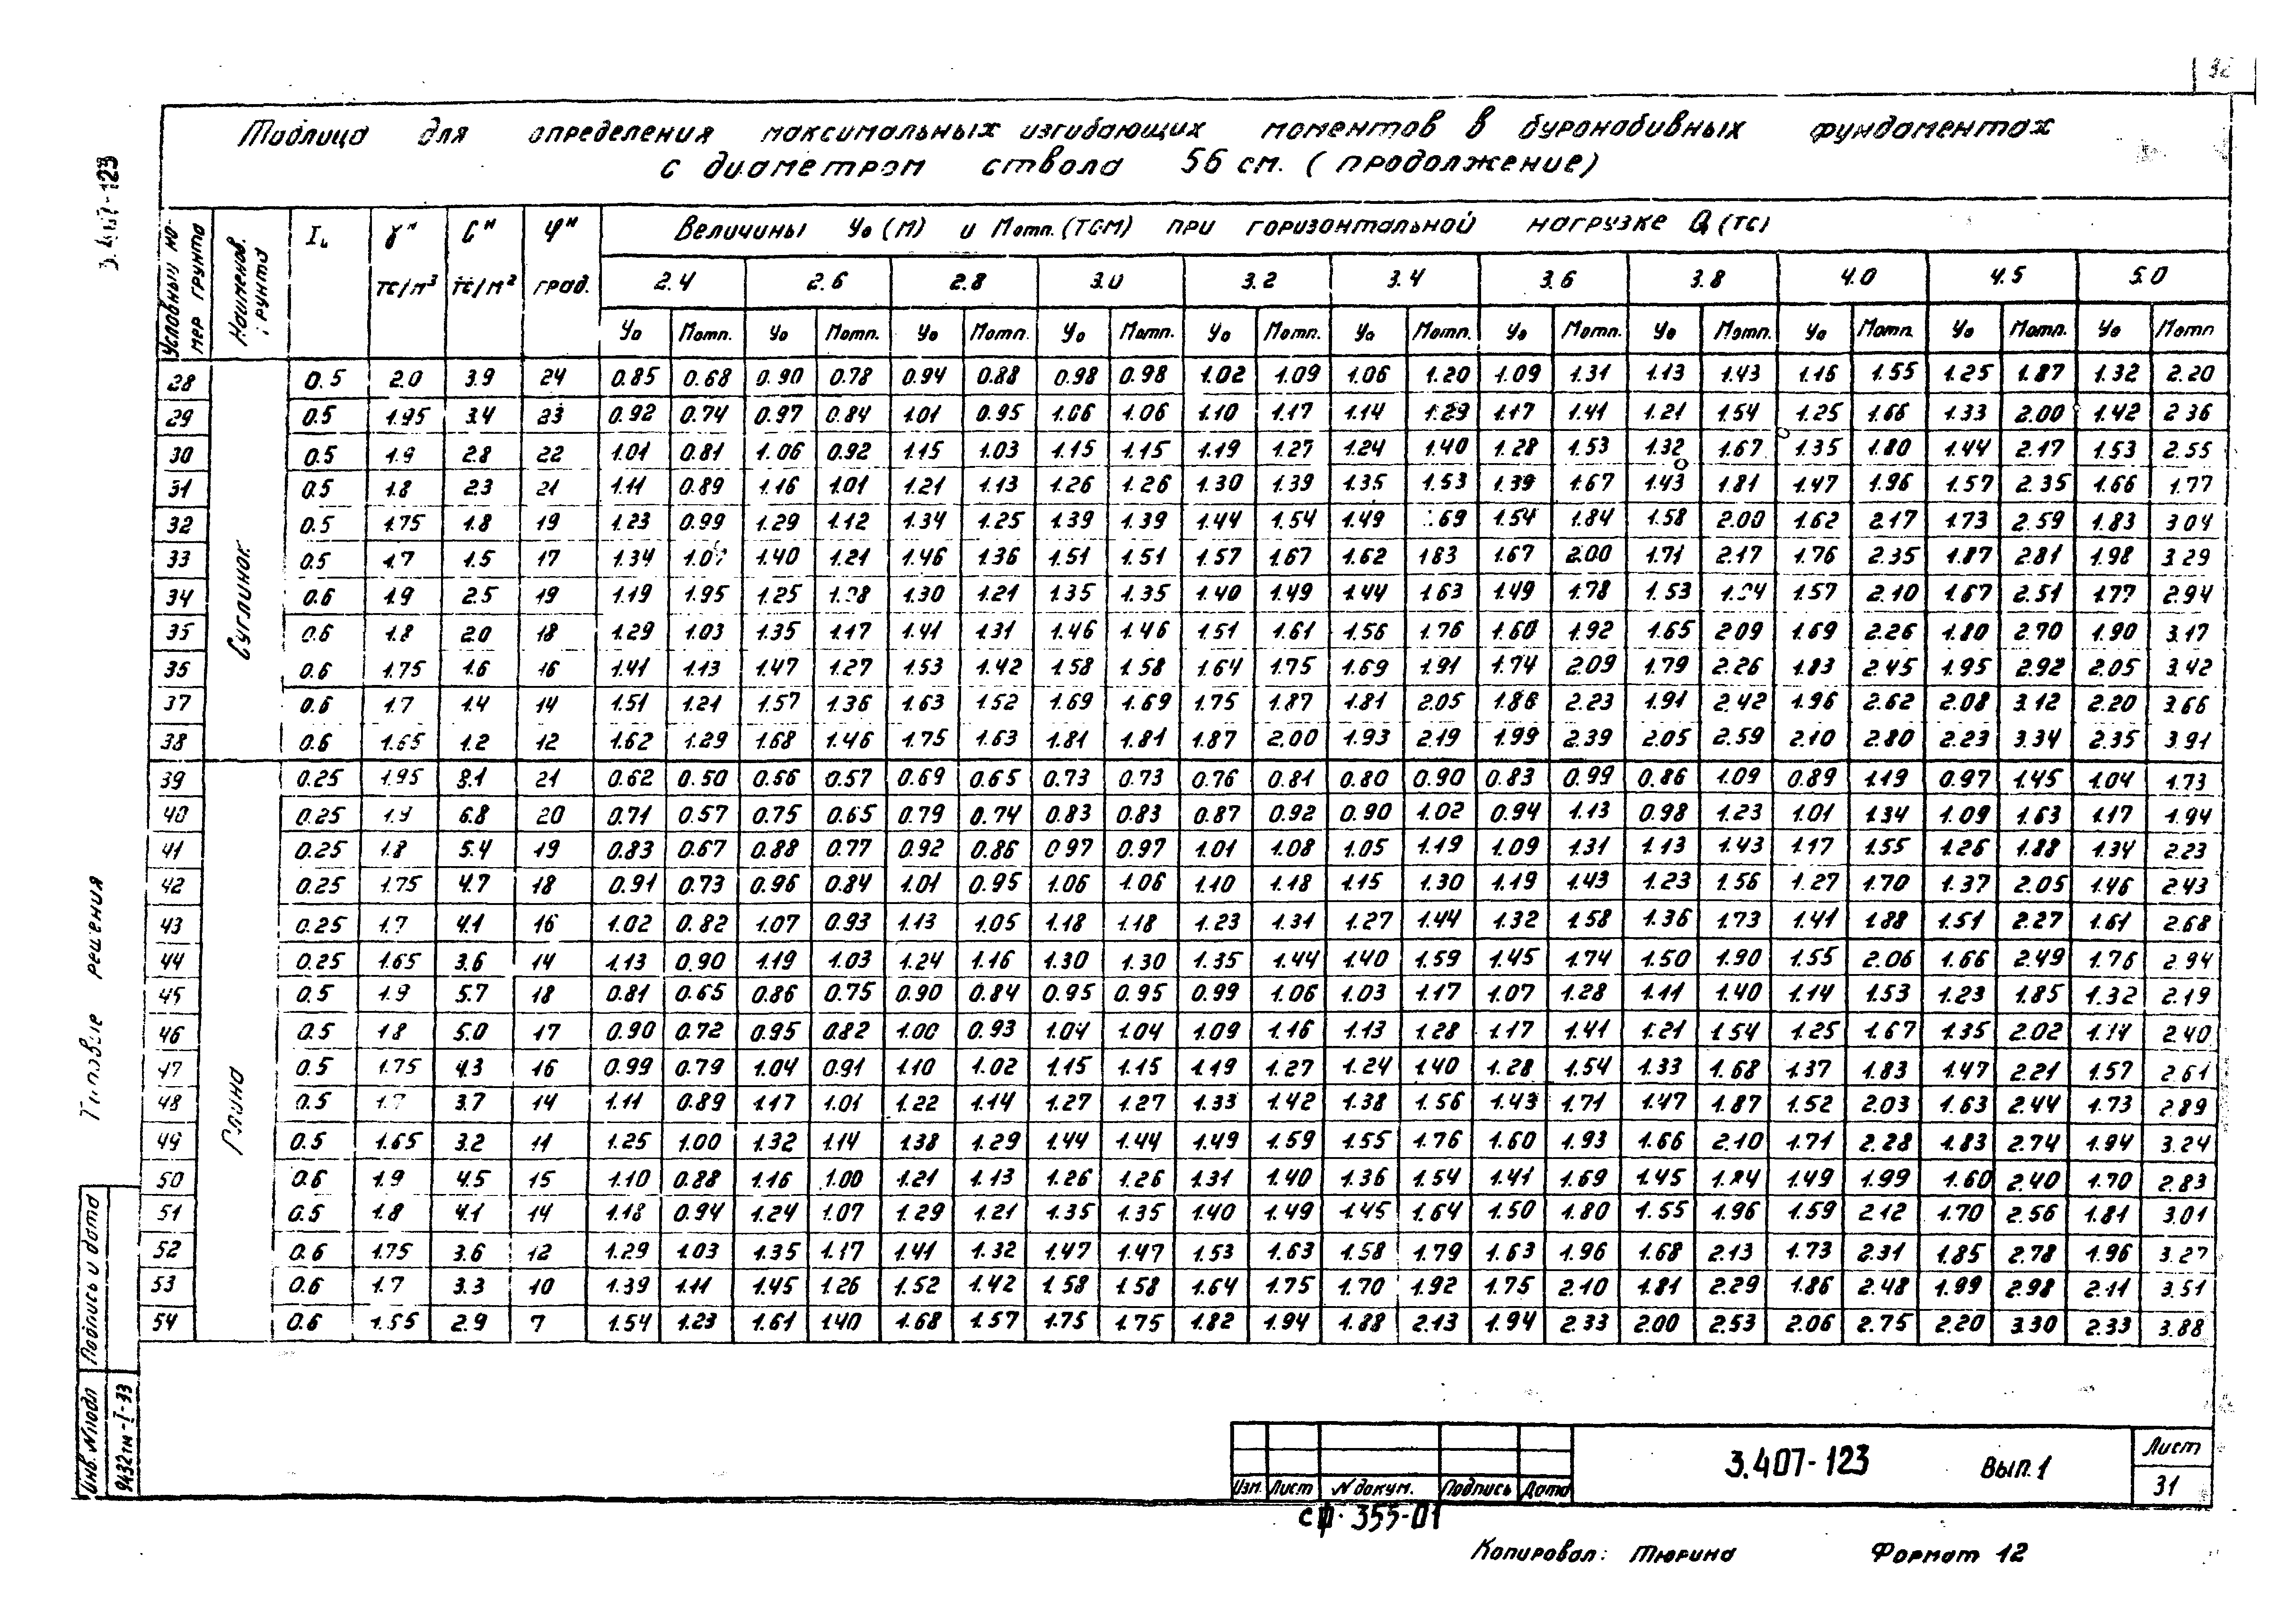 32
Таблица для определения максимальных изгибающих моментов в буронабивных фундаментах
с диаметром ствола 56 см. (продолжение)
Условный номер грунта Наименов. грунта I_L γᴴ тс/м³ Cᴴ тс/м² φᴴ град. Величины У₀ (м) и Мотп. (тсм) при горизонтальной нагрузке Q (тс)
2.4 2.6 2.8 3.0 3.2 3.4 3.6 3.8 4.0 4.5 5.0
У₀ Мотп. У₀ Мотп. У₀ Мотп. У₀ Мотп. У₀ Мотп. У₀ Мотп. У₀ Мотп. У₀ Мотп. У₀ Мотп. У₀ Мотп. У₀ Мотп
Суглинок
28 0.5 2.0 3.9 24 0.85 0.68 0.90 0.78 0.94 0.88 0.98 0.98 1.02 1.09 1.06 1.20 1.09 1.31 1.13 1.43 1.16 1.55 1.25 1.87 1.32 2.20
29 0.5 1.95 3.4 23 0.92 0.74 0.97 0.84 1.01 0.95 1.06 1.06 1.10 1.17 1.14 1.29 1.17 1.41 1.21 1.54 1.25 1.66 1.33 2.00 1.42 2.36
30 0.5 1.9 2.8 22 1.01 0.81 1.06 0.92 1.15 1.03 1.15 1.15 1.19 1.27 1.24 1.40 1.28 1.53 1.32 1.67 1.35 1.80 1.44 2.17 1.53 2.55
31 0.5 1.8 2.3 21 1.11 0.89 1.16 1.01 1.21 1.13 1.26 1.26 1.30 1.39 1.35 1.53 1.39 1.67 1.43 1.81 1.47 1.96 1.57 2.35 1.66 1.77
32 0.5 1.75 1.8 19 1.23 0.99 1.29 1.12 1.34 1.25 1.39 1.39 1.44 1.54 1.49 1.54 1.84 1.58 2.00 1.62 2.17 1.73 2.59 1.83 3.04
33 0.5 1.7 1.5 17 1.34 1.40 1.21 1.46 1.36 1.51 1.51 1.57 1.67 1.62 1.83 1.67 2.00 1.71 2.17 1.76 2.35 1.87 2.81 1.98 3.29
34 0.6 1.9 2.5 19 1.19 1.95 1.25 1.30 1.21 1.35 1.35 1.40 1.49 1.44 1.63 1.49 1.78 1.53 1.57 2.10 1.67 2.51 1.77 2.94
35 0.6 1.8 2.0 18 1.29 1.03 1.35 1.17 1.41 1.31 1.46 1.46 1.51 1.61 1.56 1.76 1.60 1.92 1.65 2.09 1.69 2.26 1.80 2.70 1.90 3.17
36 0.6 1.75 1.6 16 1.41 1.13 1.47 1.27 1.53 1.42 1.58 1.58 1.64 1.75 1.69 1.91 1.74 2.09 1.79 2.26 1.83 2.45 1.95 2.92 2.05 3.42
37 0.6 1.7 1.4 14 1.51 1.21 1.57 1.36 1.63 1.52 1.69 1.69 1.75 1.87 1.81 2.05 1.86 2.23 1.91 2.42 1.96 2.62 2.08 3.12 2.20 3.66
38 0.6 1.65 1.2 12 1.62 1.29 1.68 1.46 1.75 1.63 1.81 1.81 1.87 2.00 1.93 2.19 1.99 2.39 2.05 2.59 2.10 2.80 2.23 3.34 2.35 3.91
Глина
39 0.25 1.95 8.1 21 0.62 0.50 0.66 0.57 0.69 0.65 0.73 0.73 0.76 0.81 0.80 0.90 0.83 0.99 0.86 1.09 0.89 1.19 0.97 1.45 1.04 1.73
40 0.25 1.9 6.8 20 0.71 0.57 0.75 0.65 0.79 0.74 0.83 0.83 0.87 0.92 0.90 1.02 0.94 1.13 0.98 1.23 1.01 1.34 1.09 1.63 1.17 1.94
41 0.25 1.8 5.4 19 0.83 0.67 0.88 0.77 0.92 0.86 0.97 0.97 1.01 1.08 1.05 1.19 1.09 1.31 1.13 1.43 1.17 1.55 1.26 1.88 1.34 2.23
42 0.25 1.75 4.7 18 0.91 0.73 0.96 0.84 1.01 0.95 1.06 1.06 1.10 1.18 1.15 1.30 1.19 1.43 1.23 1.56 1.27 1.70 1.37 2.05 1.46 2.43
43 0.25 1.7 4.1 16 1.02 0.82 1.07 0.93 1.13 1.05 1.18 1.18 1.23 1.31 1.27 1.44 1.32 1.58 1.36 1.73 1.41 1.88 1.51 2.27 1.61 2.68
44 0.25 1.65 3.6 14 1.13 0.90 1.19 1.03 1.24 1.16 1.30 1.30 1.35 1.44 1.40 1.59 1.45 1.74 1.50 1.90 1.55 2.06 1.66 2.49 1.76 2.94
45 0.5 1.9 5.7 18 0.81 0.65 0.86 0.75 0.90 0.84 0.95 0.95 0.99 1.06 1.03 1.17 1.07 1.28 1.11 1.40 1.14 1.53 1.23 1.85 1.32 2.19
46 0.5 1.8 5.0 17 0.90 0.72 0.95 0.82 1.00 0.93 1.04 1.04 1.09 1.16 1.13 1.28 1.17 1.41 1.21 1.54 1.25 1.67 1.35 2.02 2.40
47 0.5 1.75 4.3 16 0.99 0.79 1.04 0.91 1.10 1.02 1.15 1.15 1.19 1.27 1.24 1.40 1.28 1.54 1.33 1.68 1.37 1.83 1.47 2.21 1.57 2.61
48 0.5 1.7 3.7 14 1.11 0.89 1.17 1.01 1.22 1.14 1.27 1.27 1.33 1.42 1.38 1.56 1.43 1.71 1.47 1.87 1.52 2.03 1.63 2.44 1.73 2.89
49 0.5 1.65 3.2 11 1.25 1.00 1.32 1.14 1.38 1.29 1.44 1.44 1.49 1.59 1.55 1.76 1.60 1.93 1.66 2.10 1.71 2.28 1.83 2.74 1.94 3.24
50 0.6 1.9 4.5 15 1.10 0.88 1.16 1.00 1.21 1.13 1.26 1.26 1.31 1.40 1.36 1.54 1.41 1.69 1.45 1.84 1.49 1.99 1.60 2.40 1.70 2.83
51 0.5 1.8 4.1 14 1.18 0.94 1.24 1.07 1.29 1.21 1.35 1.35 1.40 1.49 1.45 1.64 1.50 1.80 1.55 1.96 1.59 2.12 1.70 2.56 1.81 3.01
52 0.6 1.75 3.6 12 1.29 1.03 1.35 1.17 1.41 1.32 1.47 1.47 1.53 1.63 1.58 1.79 1.63 1.96 1.68 2.13 1.73 2.31 1.85 2.78 1.96 3.27
53 0.6 1.7 3.3 10 1.39 1.11 1.45 1.26 1.52 1.42 1.58 1.58 1.64 1.75 1.70 1.92 1.75 2.10 1.81 2.29 1.86 2.48 1.99 2.98 2.11 3.51
54 0.6 1.55 2.9 7 1.54 1.23 1.61 1.40 1.68 1.57 1.75 1.75 1.82 1.94 1.88 2.13 1.94 2.33 2.00 2.53 2.06 2.75 2.20 3.30 2.33 3.88
Типовые решения
Подпись и дата
Инв. №подл
9432тм-I-33
Изм. Лист № докум. Подпись Дата
3.407-123 Вып.1
Лист
31
сф. 355-01
Копировал: Тюрина Формат 12